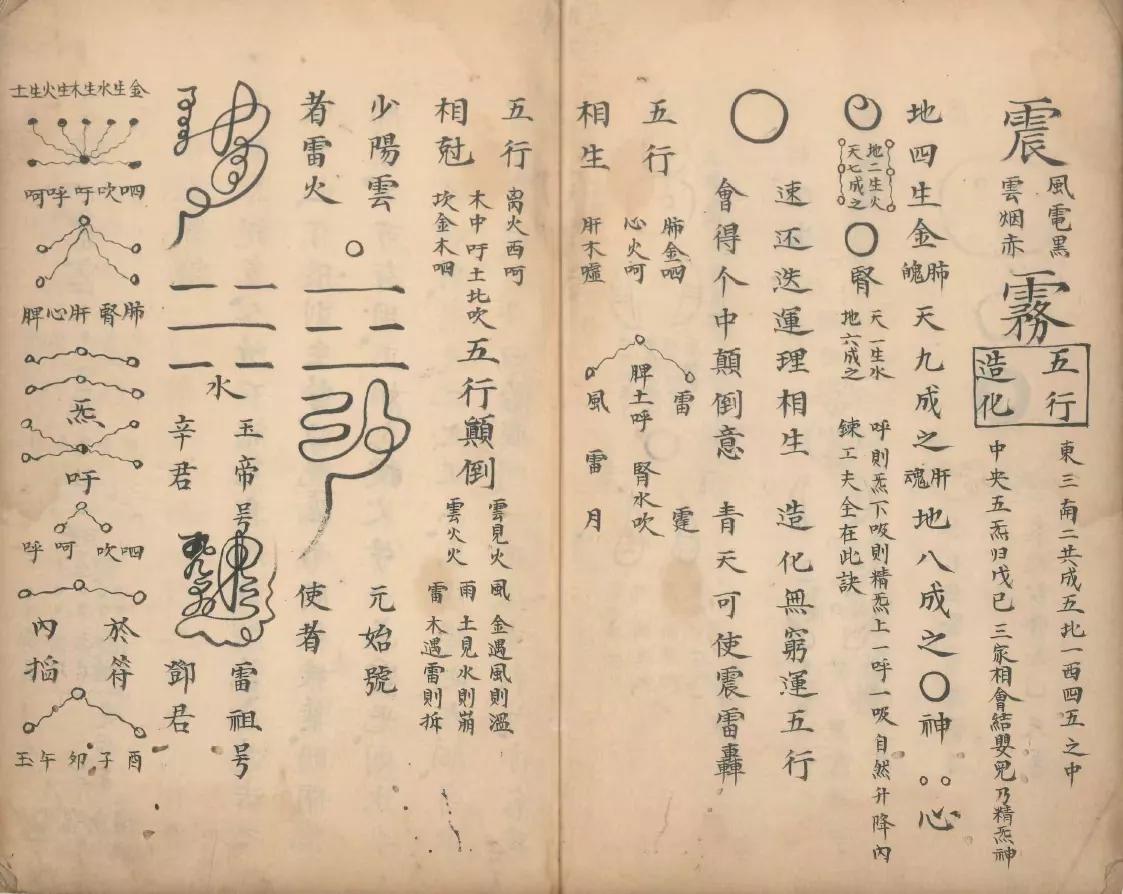 震
風電黑
雲烟赤
霧
五行
造化
東三南二共成五北一西四五之中
中央五炁归戊己三家相會結嬰兒乃精炁神
地四生金
肺
魄
天九成之
肝
魂
地八成之
神
心
地二生火
天七成之
腎
天一生水
地六成之
呼則炁下吸則精炁上一呼一吸自然升降內
鍊工夫全在此訣
速还迭運理相生
造化無窮運五行
會得个中顛倒意
青天可使震雷轟
五行
相生
肺金呬
心火呵
肝木噓
脾土呼
腎水吹
雷霆
風雷月
五行
相尅
离火西呵
木中吁土北吹
坎金木呬
五行顛倒
雲見火
雲火火
風金遇風則溫
雨土見水則崩
雷木遇雷則拆
少陽雲
者雷火
元始號
使者
水
玉帝号
辛君
雷祖号
鄧君
金生水生木生火生土
呬吹吁呼呵
肺腎肝心脾
炁
吁
呬吹呵呼
於符
內搯
酉子卯午玉